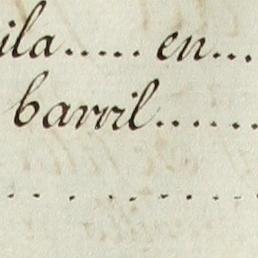 ila..... en...
barril......